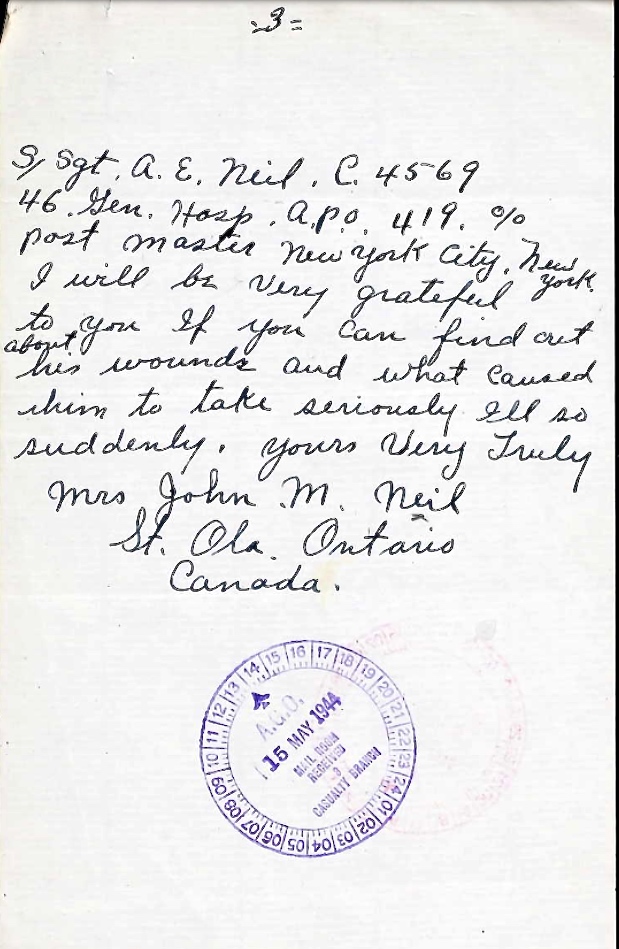 =3=
S/Sgt. A. E. Neil. C. 4569
46. Gen. Hosp. A.P.O. 419. %
post master New York City. New York.
I will be very grateful
to you If you can find out
about his wounds and what caused
him to take seriously Ill so
suddenly. yours Very Truly
Mrs John M. Neil
St. Ola. Ontario
Canada.
01 02 03 04 05 06 07 08 09 10 11 12 13 14 15 16 17 18 19 20 21 22 23 24
A.G.O.
15 MAY 1944
MAIL ROOM
RECEIVED
3
CASUALTY BRANCH